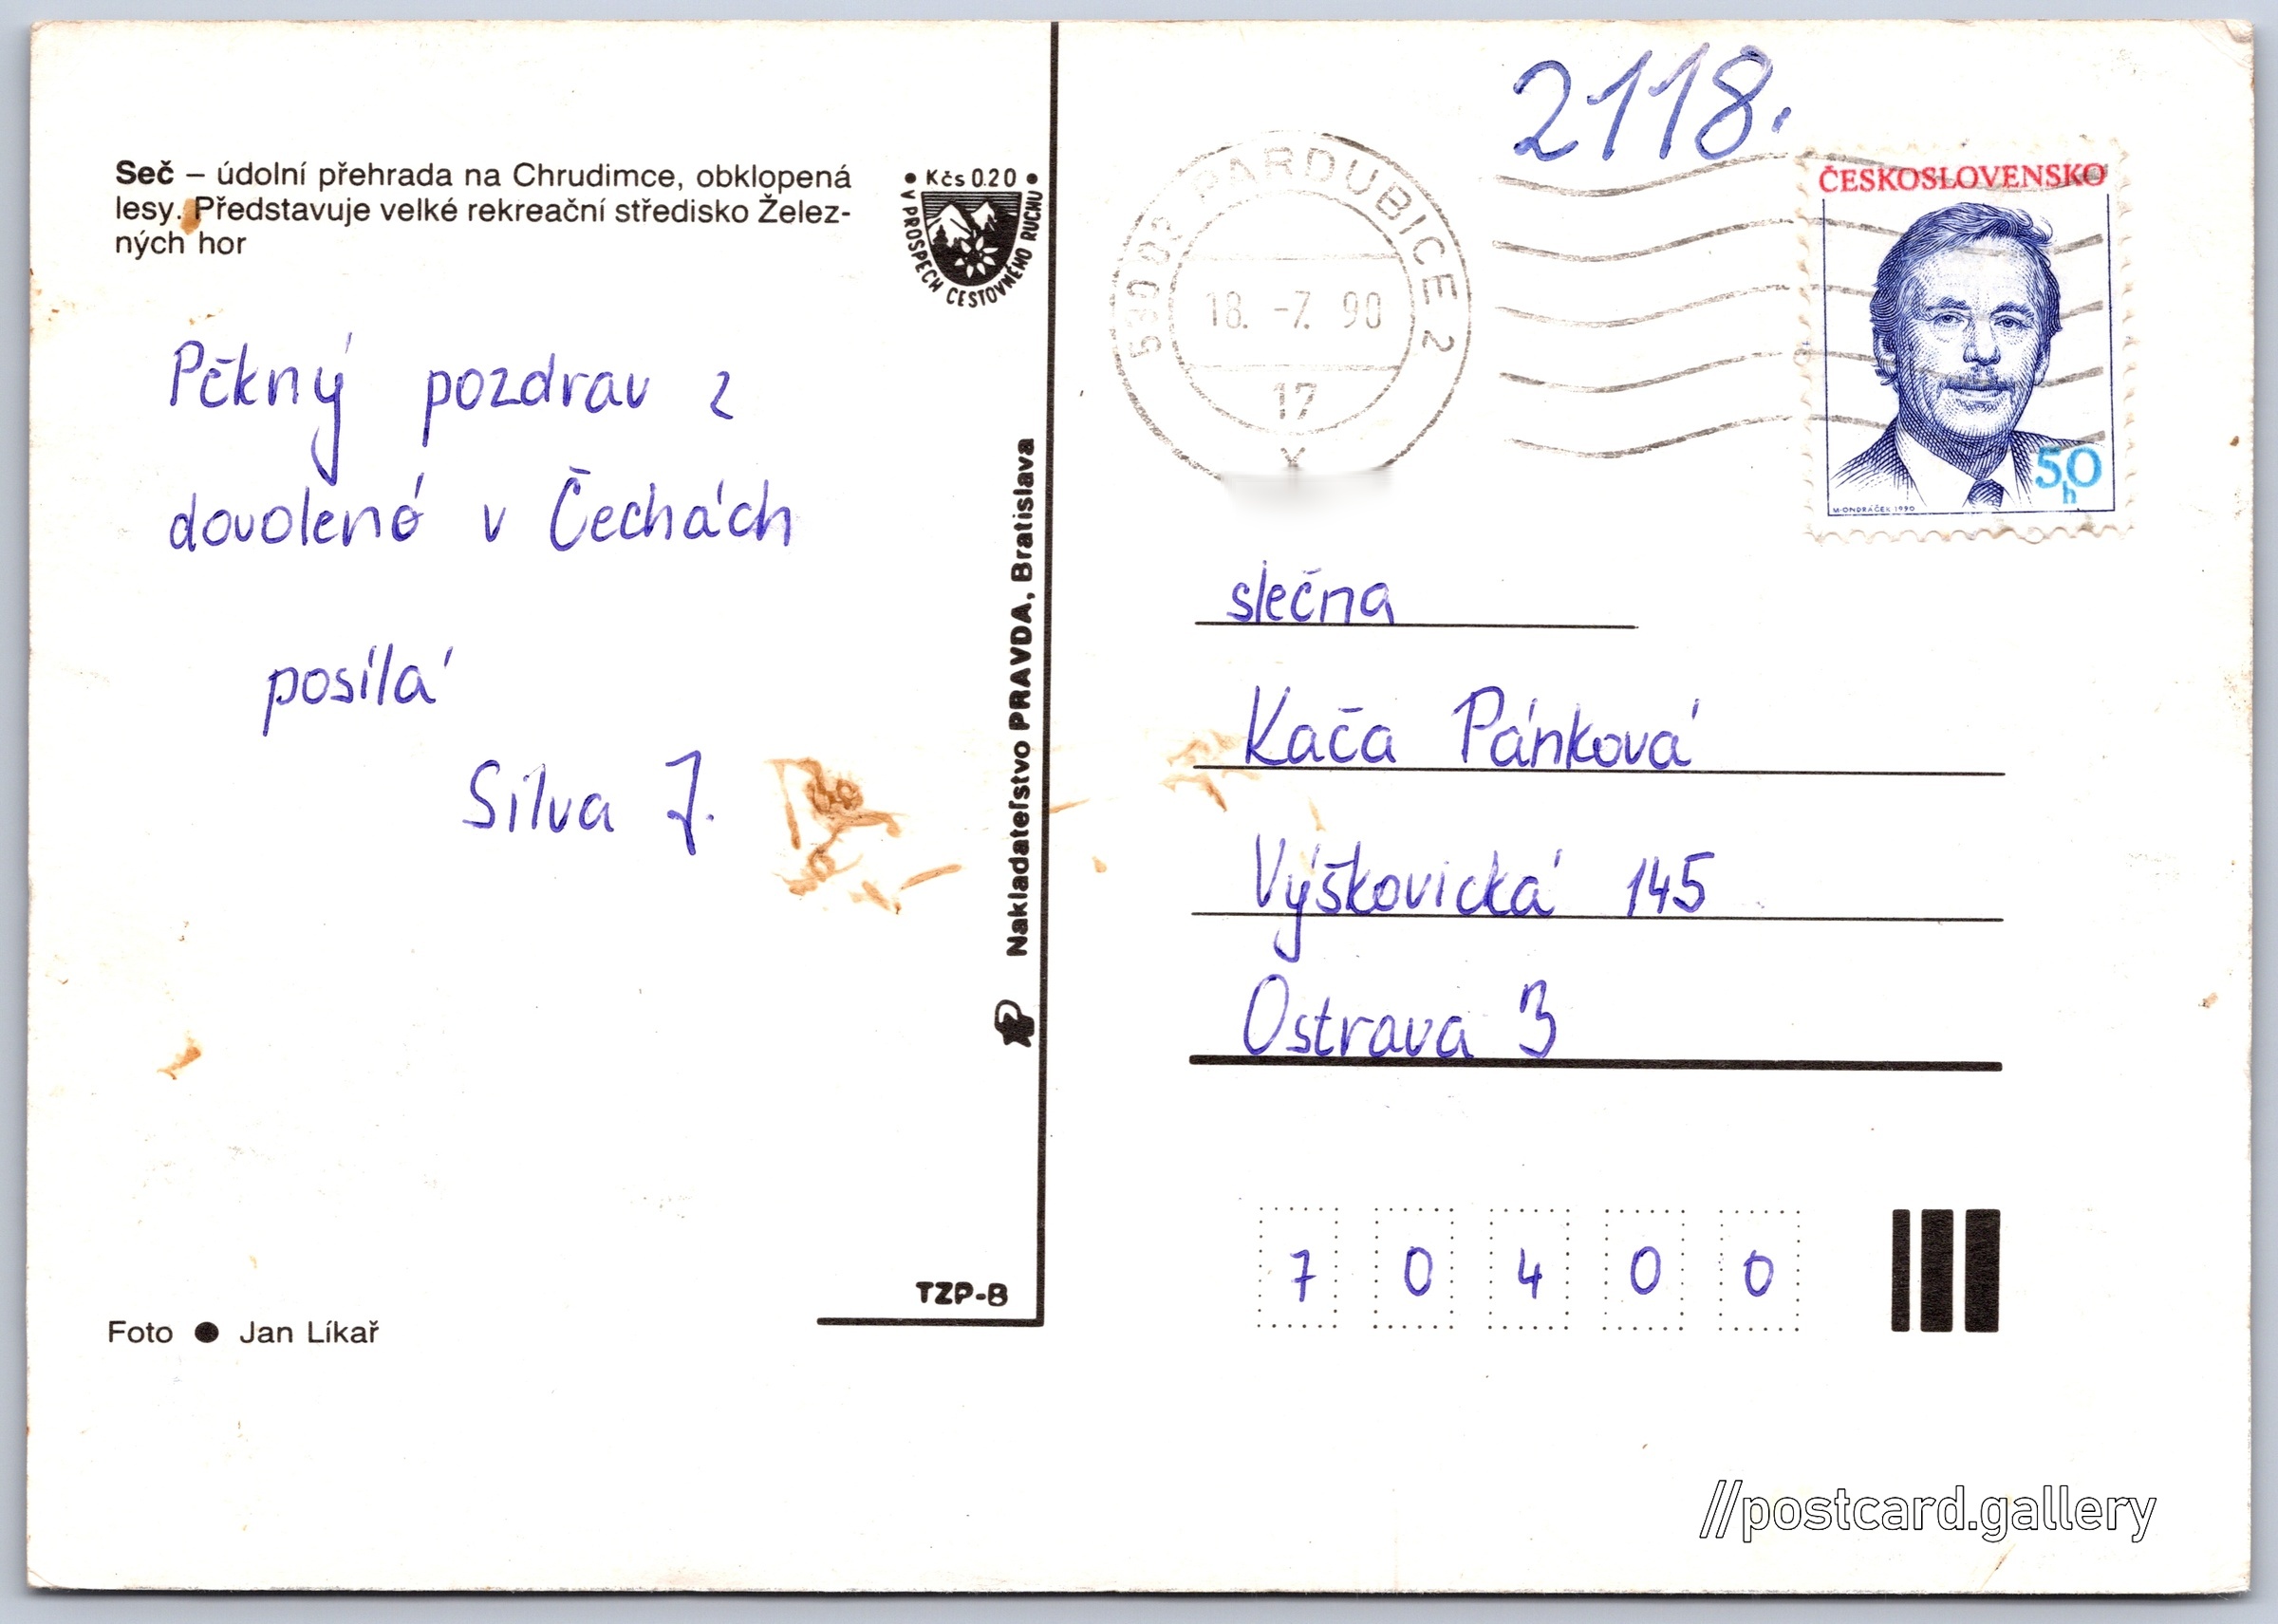 2118.
Seč – údolní přehrada na Chrudimce, obklopená
lesy. Představuje velké rekreační středisko Želez-
ných hor
• Kčs 0.20 •
V PROSPECH CESTOVNÉHO RUCHU
Pěkný pozdrav z
dovolené v Čechách
posílá
Silva J.
Foto ● Jan Líkař
Nakladateľstvo PRAVDA, Bratislava
TZP-8
530 02 PARDUBICE 2
18. -7. 90
17
x
ČESKOSLOVENSKO
50
h
M. ONDRÁČEK 1990
slečna
Kača Pánková
Výškovická 145
Ostrava 3
7 0 4 0 0
//postcard.gallery